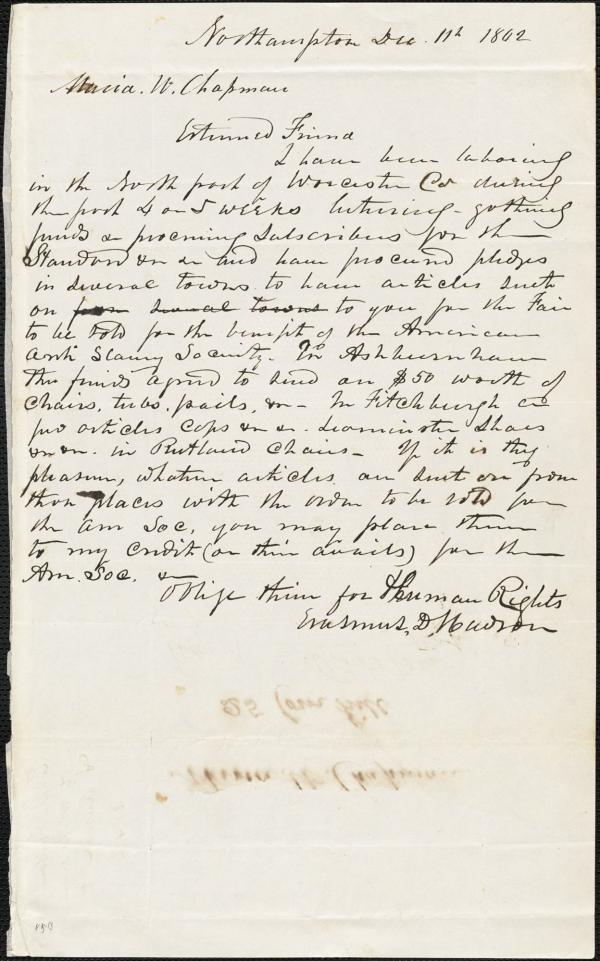 Northampton Dec. 11th 1842
Maria. W. Chapman
Esteemed Friend
I have been laboring
in the North part of Worcester Co during
the past 4 or 5 weeks lecturing - getting
funds & procuring subscribers for the
Standard &c & and have procured pledges
in several towns to have articles sent
on from several towns to you for the Fair
to be sold for the benefit of the American
Anti Slavery Society. In Ashburnham
the funds agreed to send on $50 worth of
Chairs, tubs, pails, &c - In Fitchburgh a
few articles Caps &c &c. Leominster Shoes
&c &c. in Rutland Chairs - If it is thy
pleasure, whatever articles are sent on from
those places with the order to be sold for
the Am Soc, you may place them
to my credit (or their avails) for the
Am. Soc. &
Oblige thine for Human Rights
Erasmus, D, Hudson
25 Corn hill
Maria W. Chapman